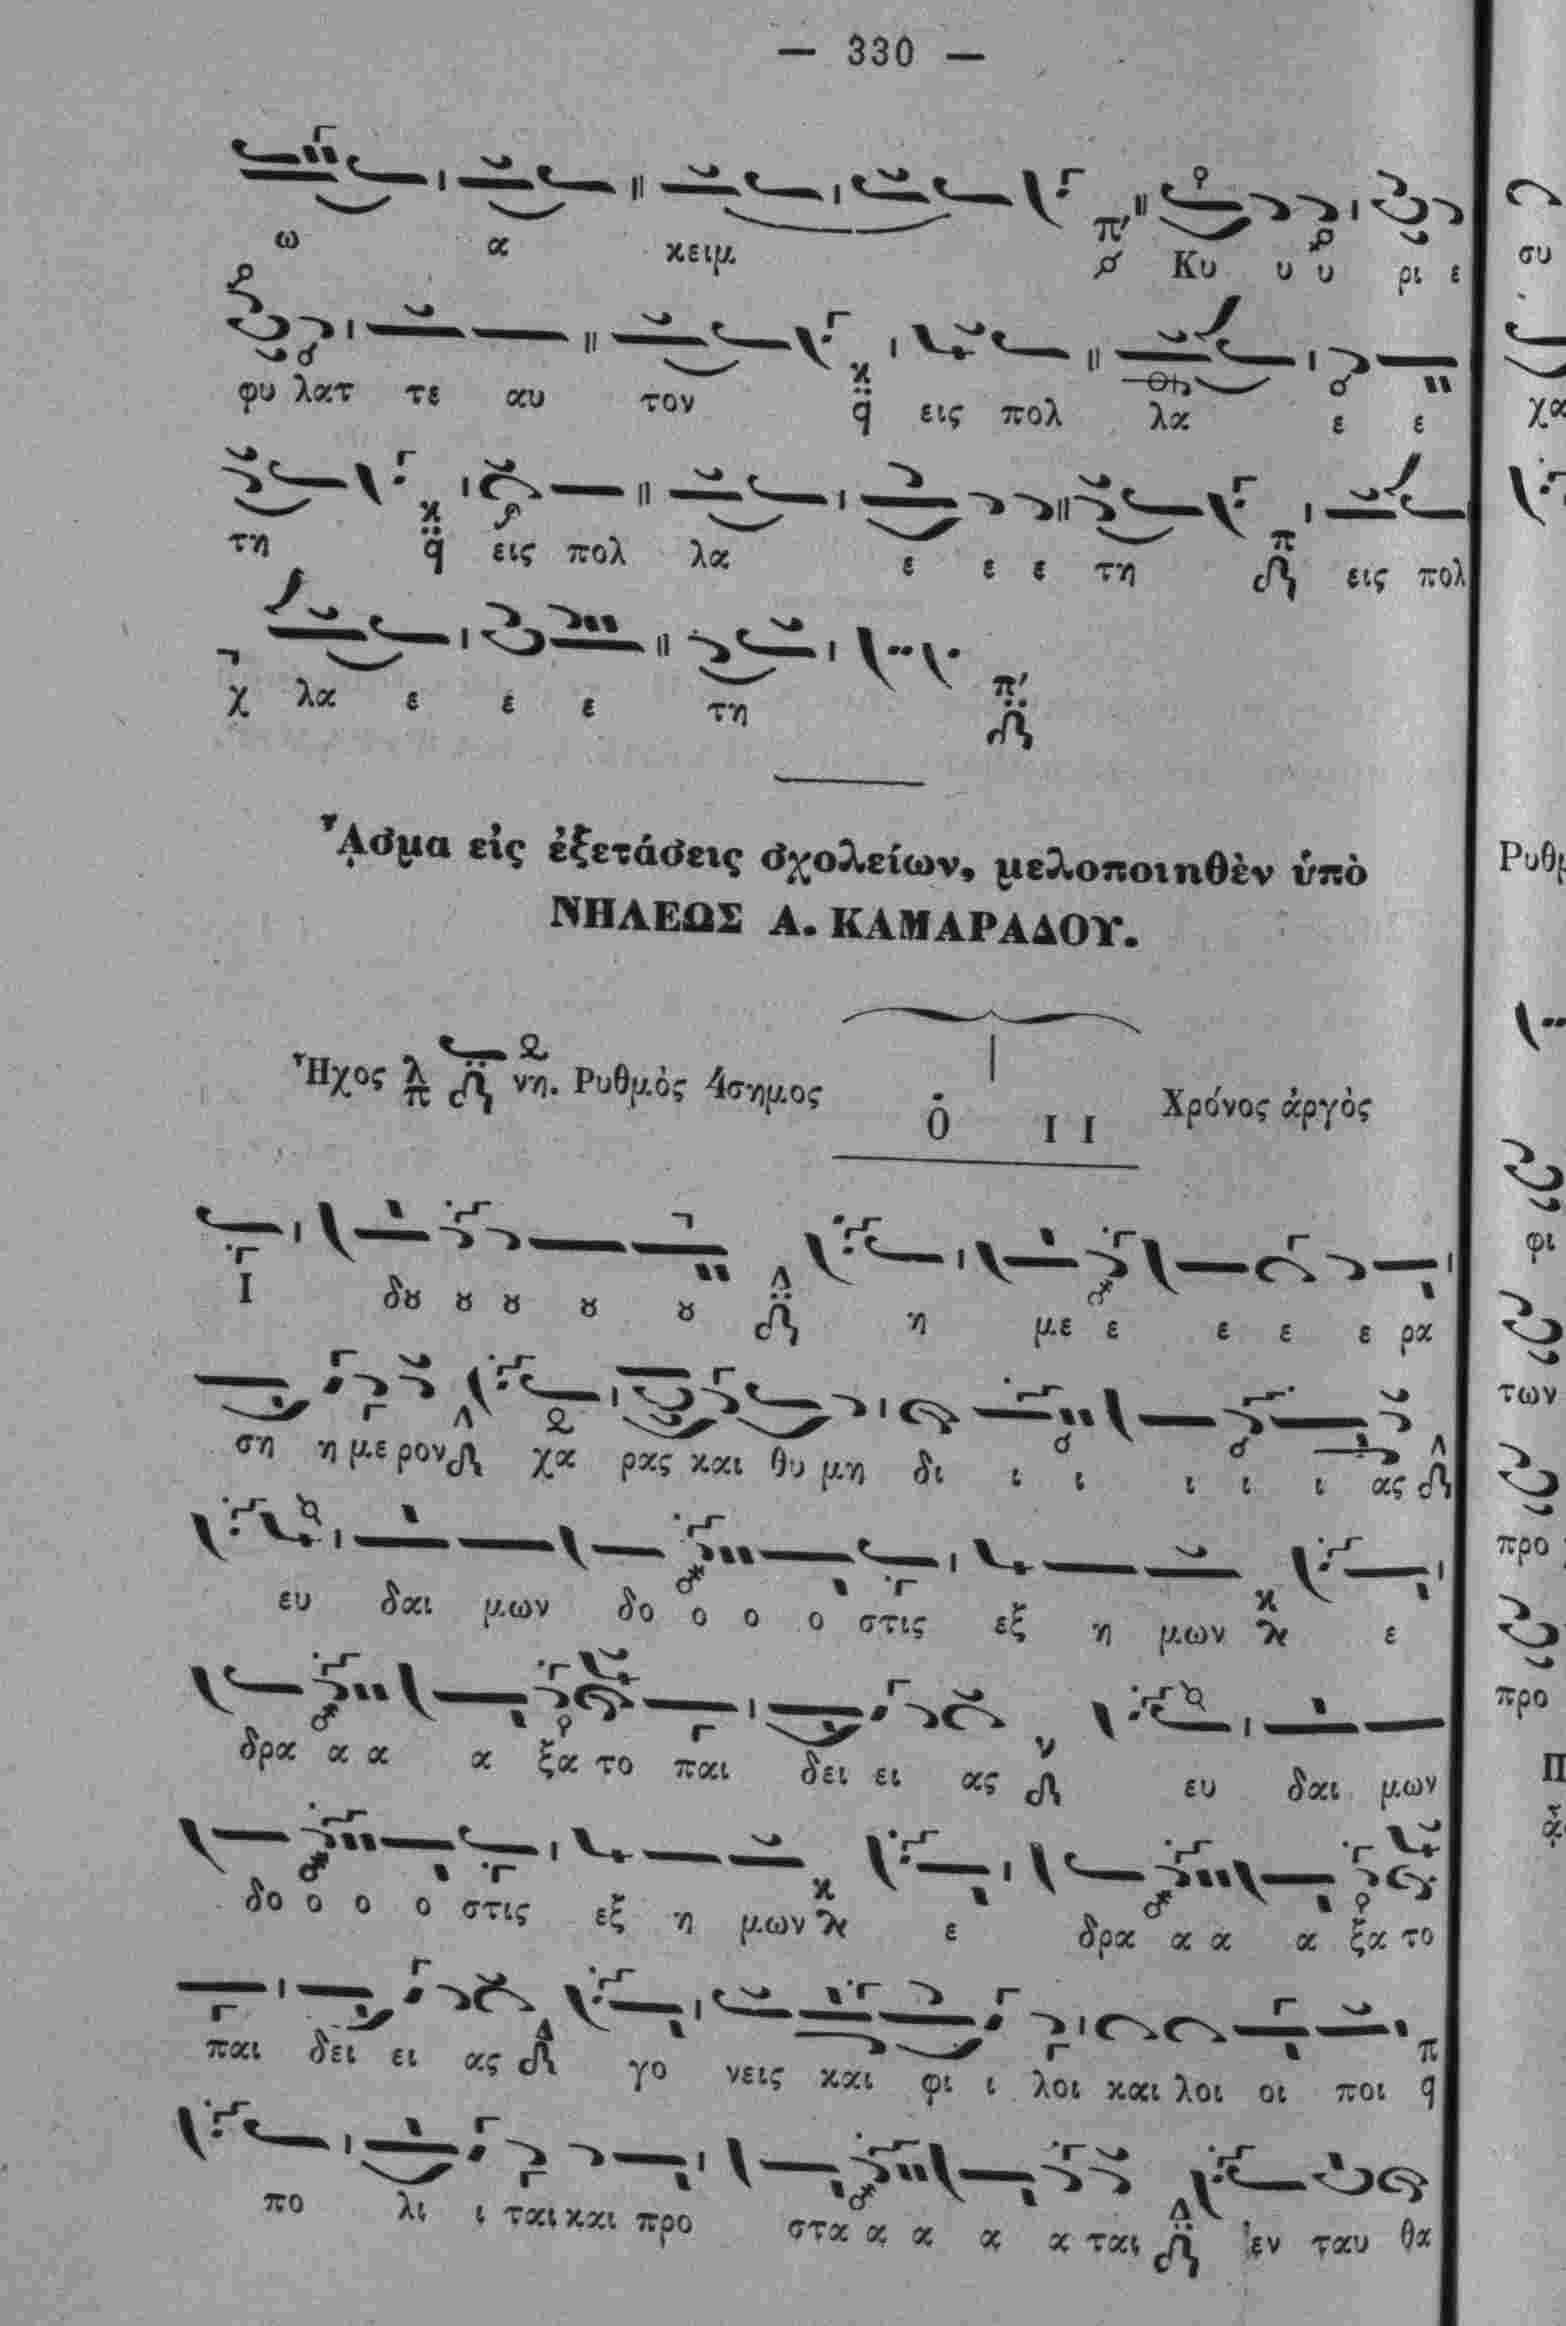 — 330 —
ω α κειμ πʹ Κυ υ υ ρι ε
φυ λατ τε αυ τον ϗ q εις πολ λα ε ε
τη ϗ q εις πολ λα ε ε ε τη π εις πολ
χ λα ε ε ε τη πʹ
ᾎσμα εἰς ἐξετάσεις σχολείων, μελοποιηθὲν ὑπὸ
ΝΗΛΕΩΣ Α. ΚΑΜΑΡΑΔΟΥ.
Ἦχος λ π νη. Ρυθμὸς 4σημος Ο Ι Ι Χρόνος ἀργὸς
Ι δȣ ȣ ȣ ȣ ȣ Δ η με ε ε ε ε ρα
ση η με ρον Δ χα ρας και θυ μη δι ι ι ι ι ι ας Δ
ευ δαι μων δο ο ο ο στις εξ η μων ϗ ε
δρα α α α ξα το παι δει ει ας ν ευ δαι μων
δο ο ο ο στις εξ η μων ϗ ε δρα α α α ξα το
παι δει ει ας Δ γο νεις και φι ι λοι και λοι οι ποι π q
πο λι ι ται και προ στα α α α α ται Δ εν ταυ θα
συ
χα
Ρυθμ
φι
των
προ
προ
Π